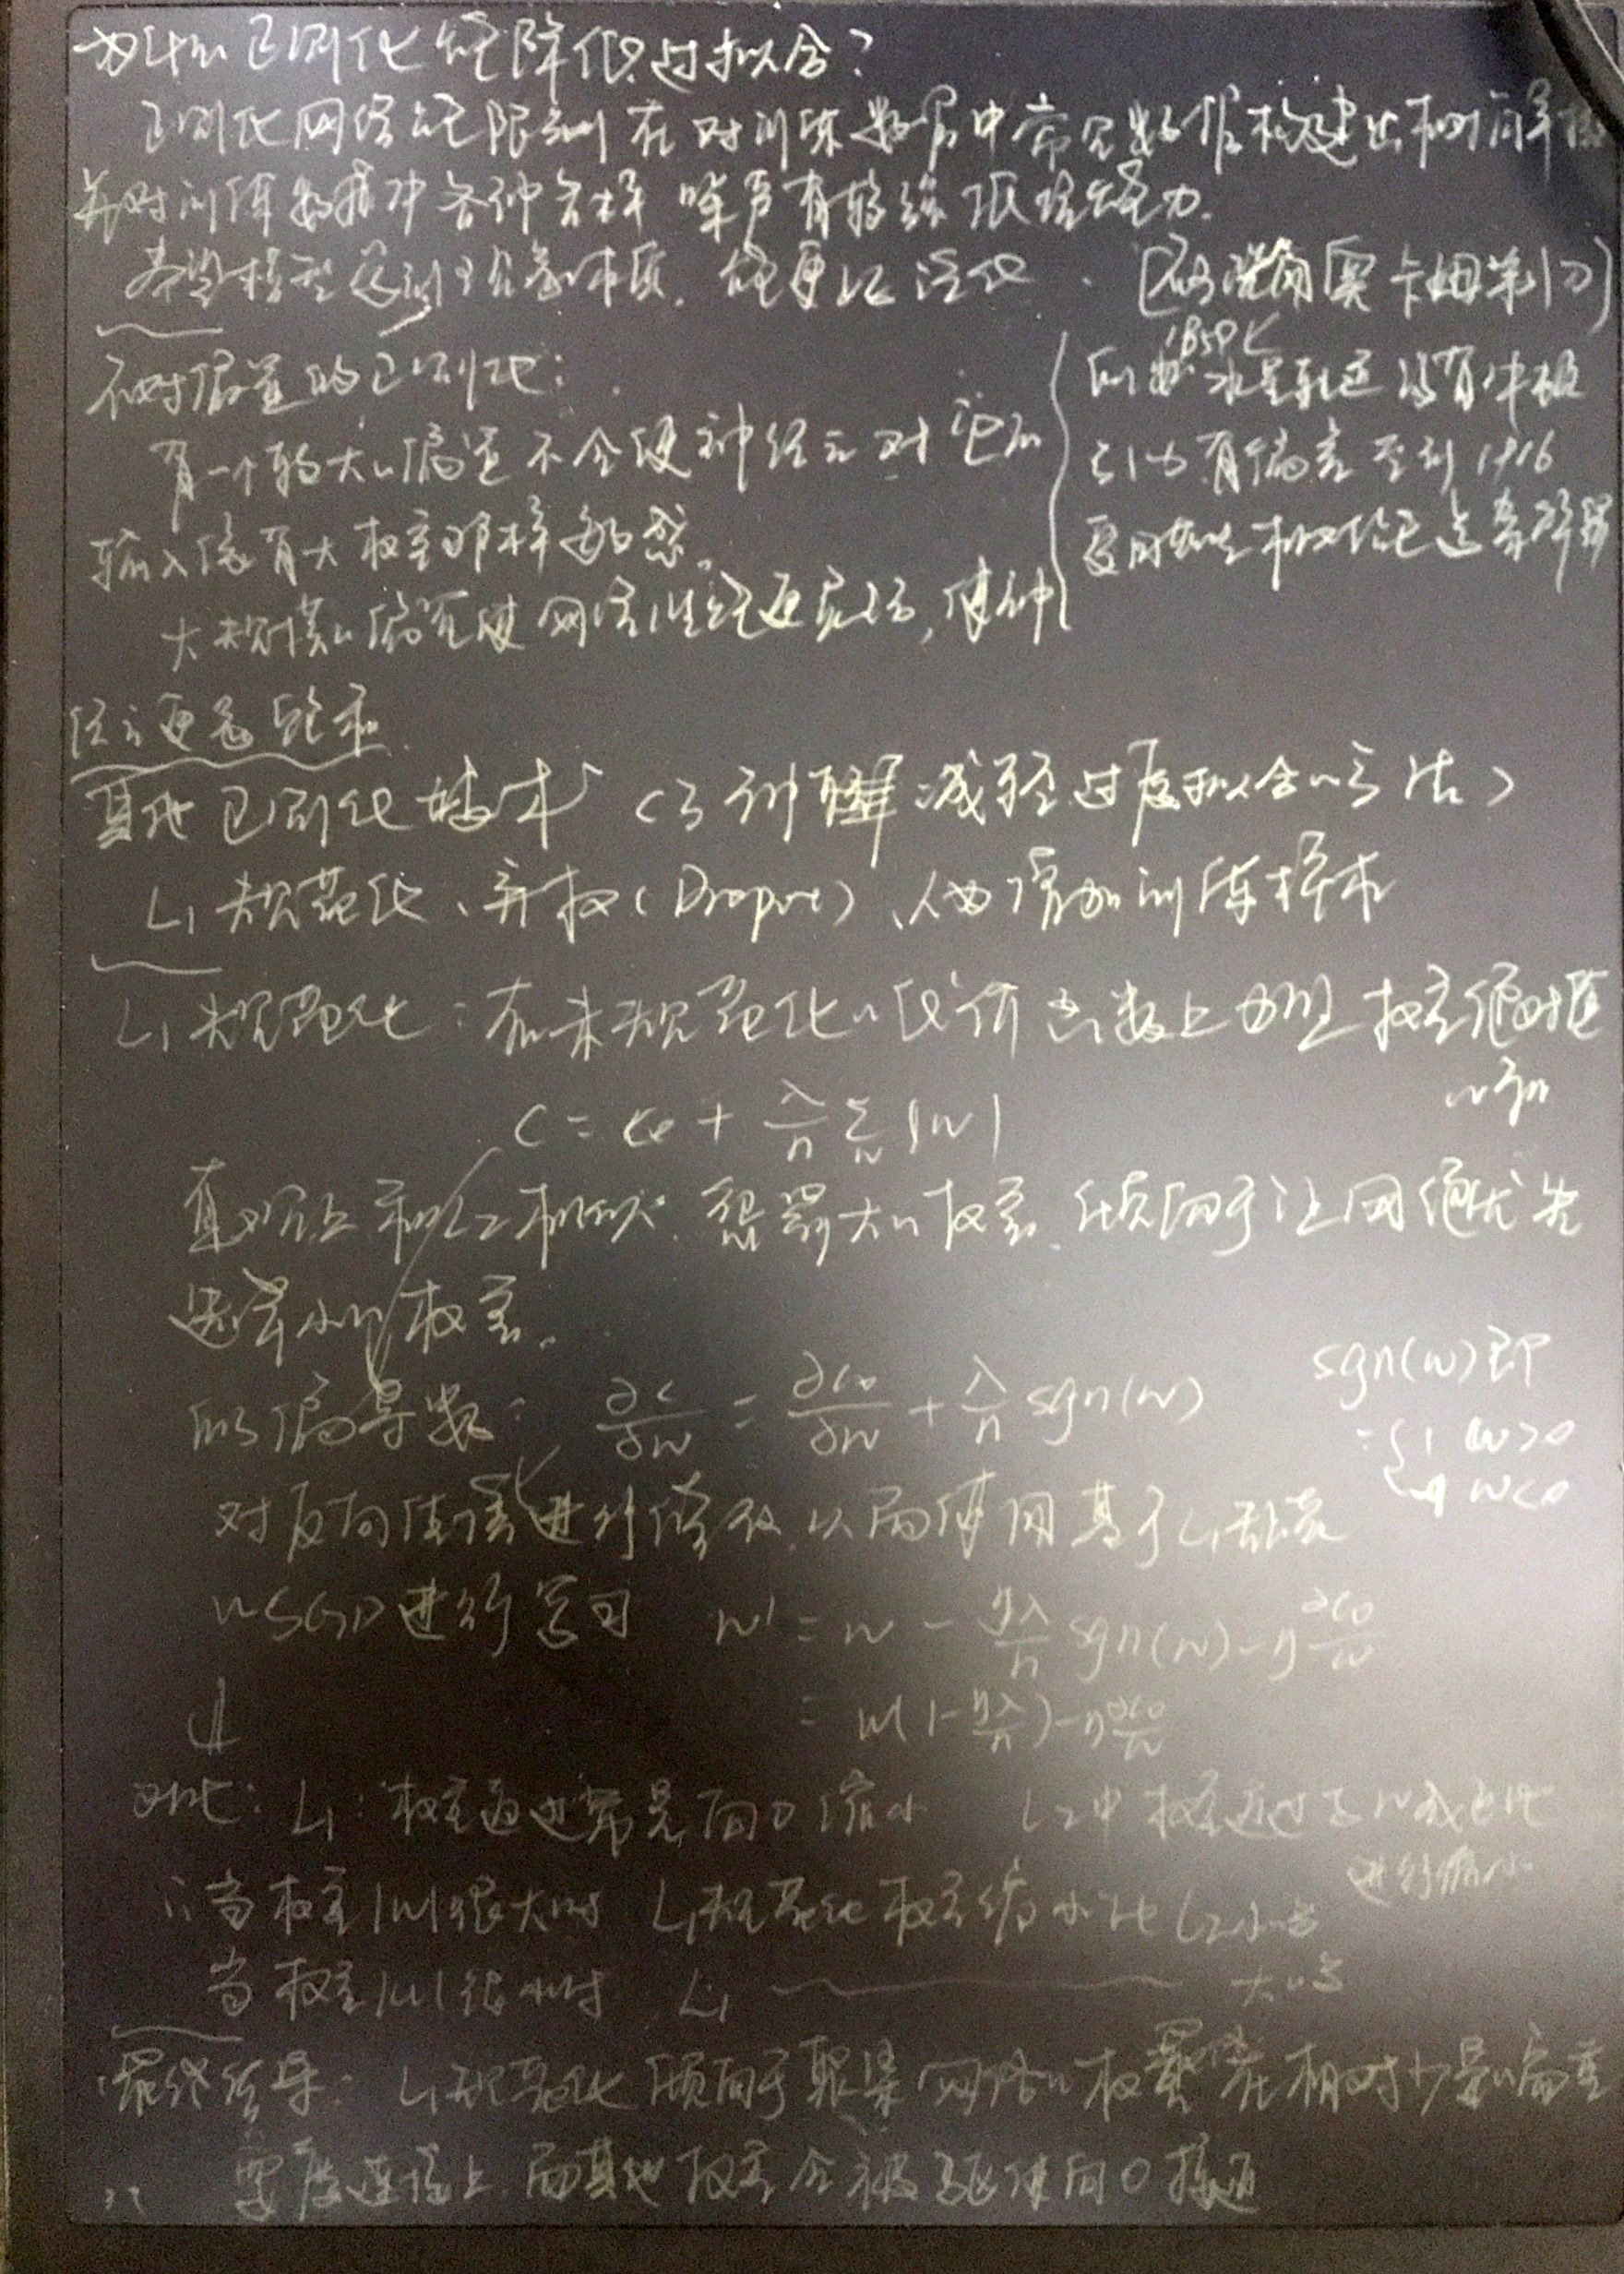 为什么正则化能降低过拟合?
正则化网络能限制在对训练数据中常见数据构建出相对简单
并对训练数据中各种各样噪声有较强抵抗能力.
希望模型 本质, 能更 泛化 . 奥卡姆剃刀)
不对偏置的正则化:
有一个较大的偏置不会使神经元对它的
输入像有大权重那样敏感。
大规模的偏置使网络性能更灵活, 使神
经元更易饱和.
1859
水星轨道 没有牛顿
引力有偏差 直到1916
爱因斯坦相对论
其他正则化技术 (3种 减轻过度拟合的方法)
L1规范化、弃权(Dropout)、人为增加训练样本
L1规范化:在未规范化的代价函数上加上权重绝对值
的和
C = C₀ + λ/n Σw |w|
直观上和L2相似. 惩罚大的权重, 倾向于让网络优先
选择小的权重。
偏导数: ∂C/∂w = ∂C₀/∂w + λ/n sgn(w)
sgn(w)即
= { 1 w>0
-1 w<0
对反向传播进行修改, 从而使用基于L1规范
的SGD进行学习 w' = w - ηλ/n sgn(w) - η ∂C₀/∂w
= w(1 - ηλ/n) - η ∂C₀/∂w
对比: L1: 权重通过常量向0缩小 L2中权重通过与w成正比
进行缩小
∴ 当权重|w|很大时 L1规范化权重缩小比L2小
当权重|w|很小时 L1 大
最终结果: L1规范化倾向于聚集网络的权重在相对少量的高重
要度连接上, 而其他权重会被驱使向0接近